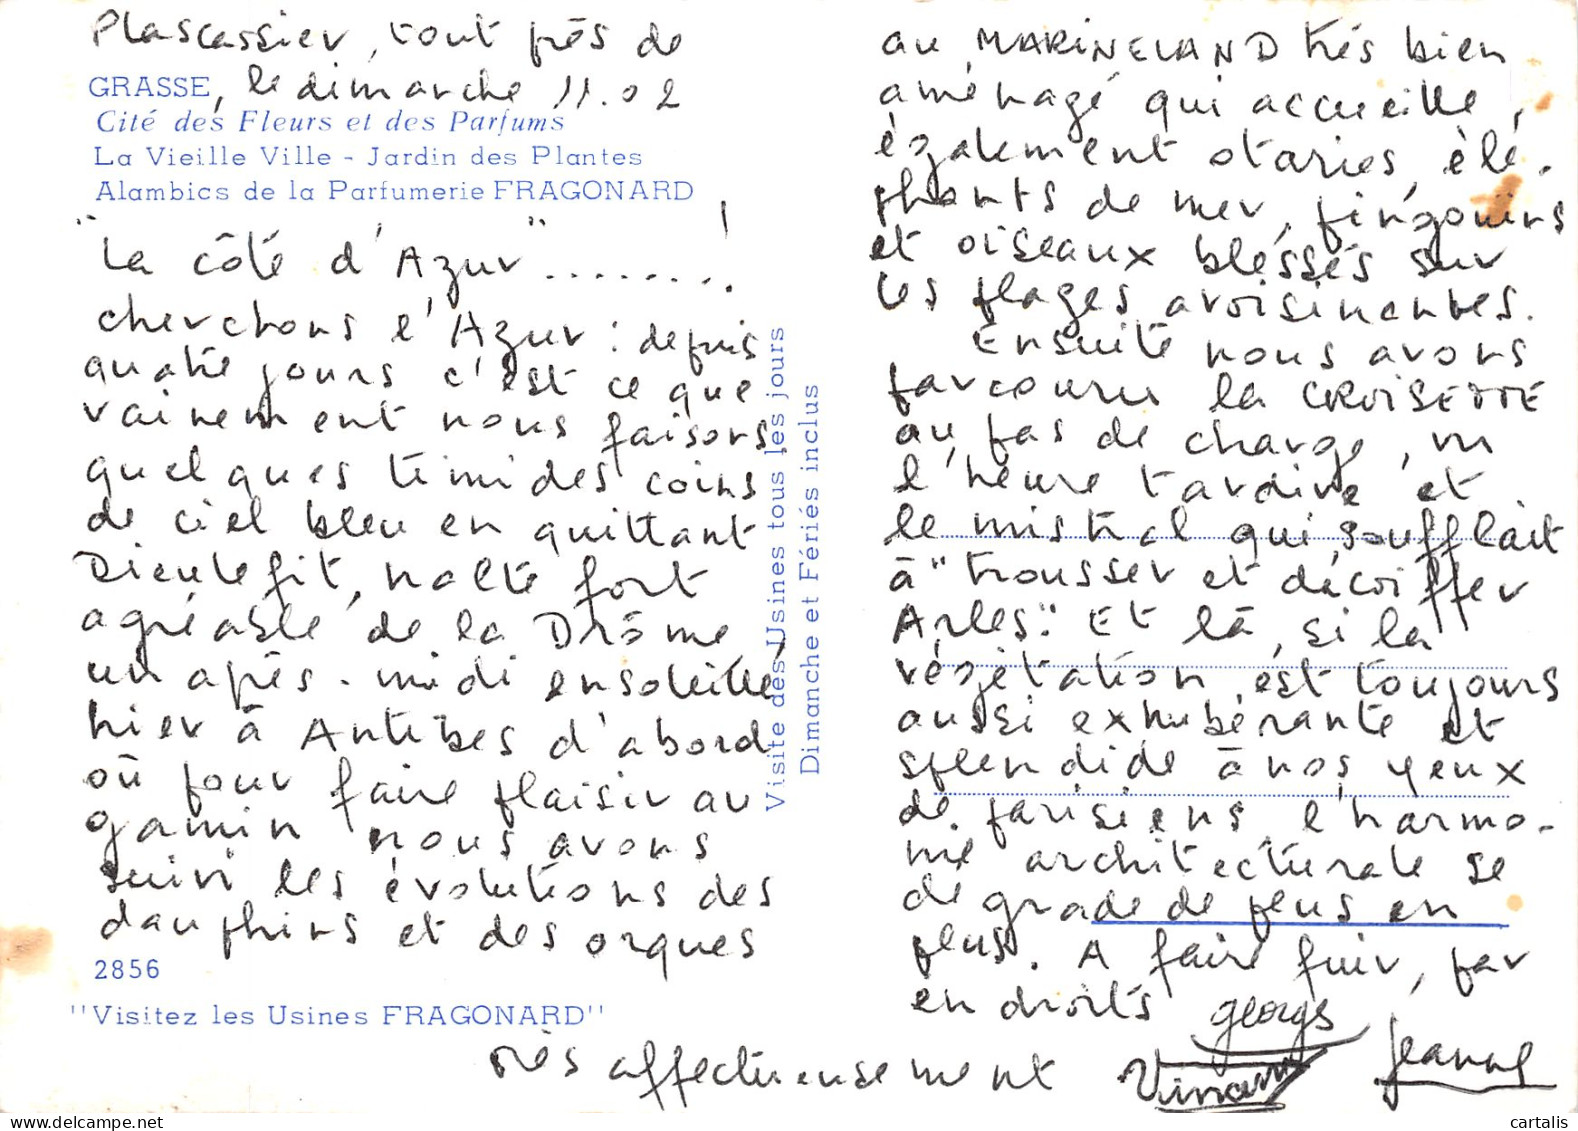 Plascassier, tout près de
GRASSE, le dimanche 11.02
Cité des Fleurs et des Parfums
La Vieille Ville - Jardin des Plantes
Alambics de la Parfumerie FRAGONARD
"La côte d'Azur" ........!
cherchons l'Azur : depuis
quatre jours c'est ce que
vainement nous faisons
quelques timides coins
de ciel bleu en quittant
Dieulefit, halte fort
agréable de la Drôme,
un après-midi ensoleillé
hier à Antibes d'abord
où pour faire plaisir au
gamin nous avons
suivi les évolutions des
dauphins et des orques
2856
"Visitez les Usines FRAGONARD"
Visite des Usines tous les jours
Dimanche et Fériés inclus
au MARINELAND très bien
aménagé qui accueille,
également otaries, élé-
phants de mer, pingouins
et oiseaux blessés sur
les plages avoisinantes.
Ensuite nous avons
parcouru la CROISETTE
au pas de charge, vu
l'heure tardive et
le mistral qui soufflait
à "trousser et décoiffer
Arles". Et là, si la
végétation est toujours
aussi exhubérante et
splendide à nos yeux
de parisiens, l'harmo-
nie architecturale se
dégrade de plus en
plus. A faire fuir, par
endroits
Très affectueusement
Georges
Vincent
Jeanne
cartalis